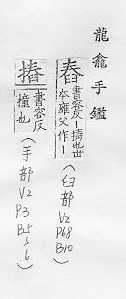 龍龕手鑑
舂
書容反—擣也世
本雍父作—
(臼部 V2 P68 B10)
書容反
撞也
(手部 V2 P3